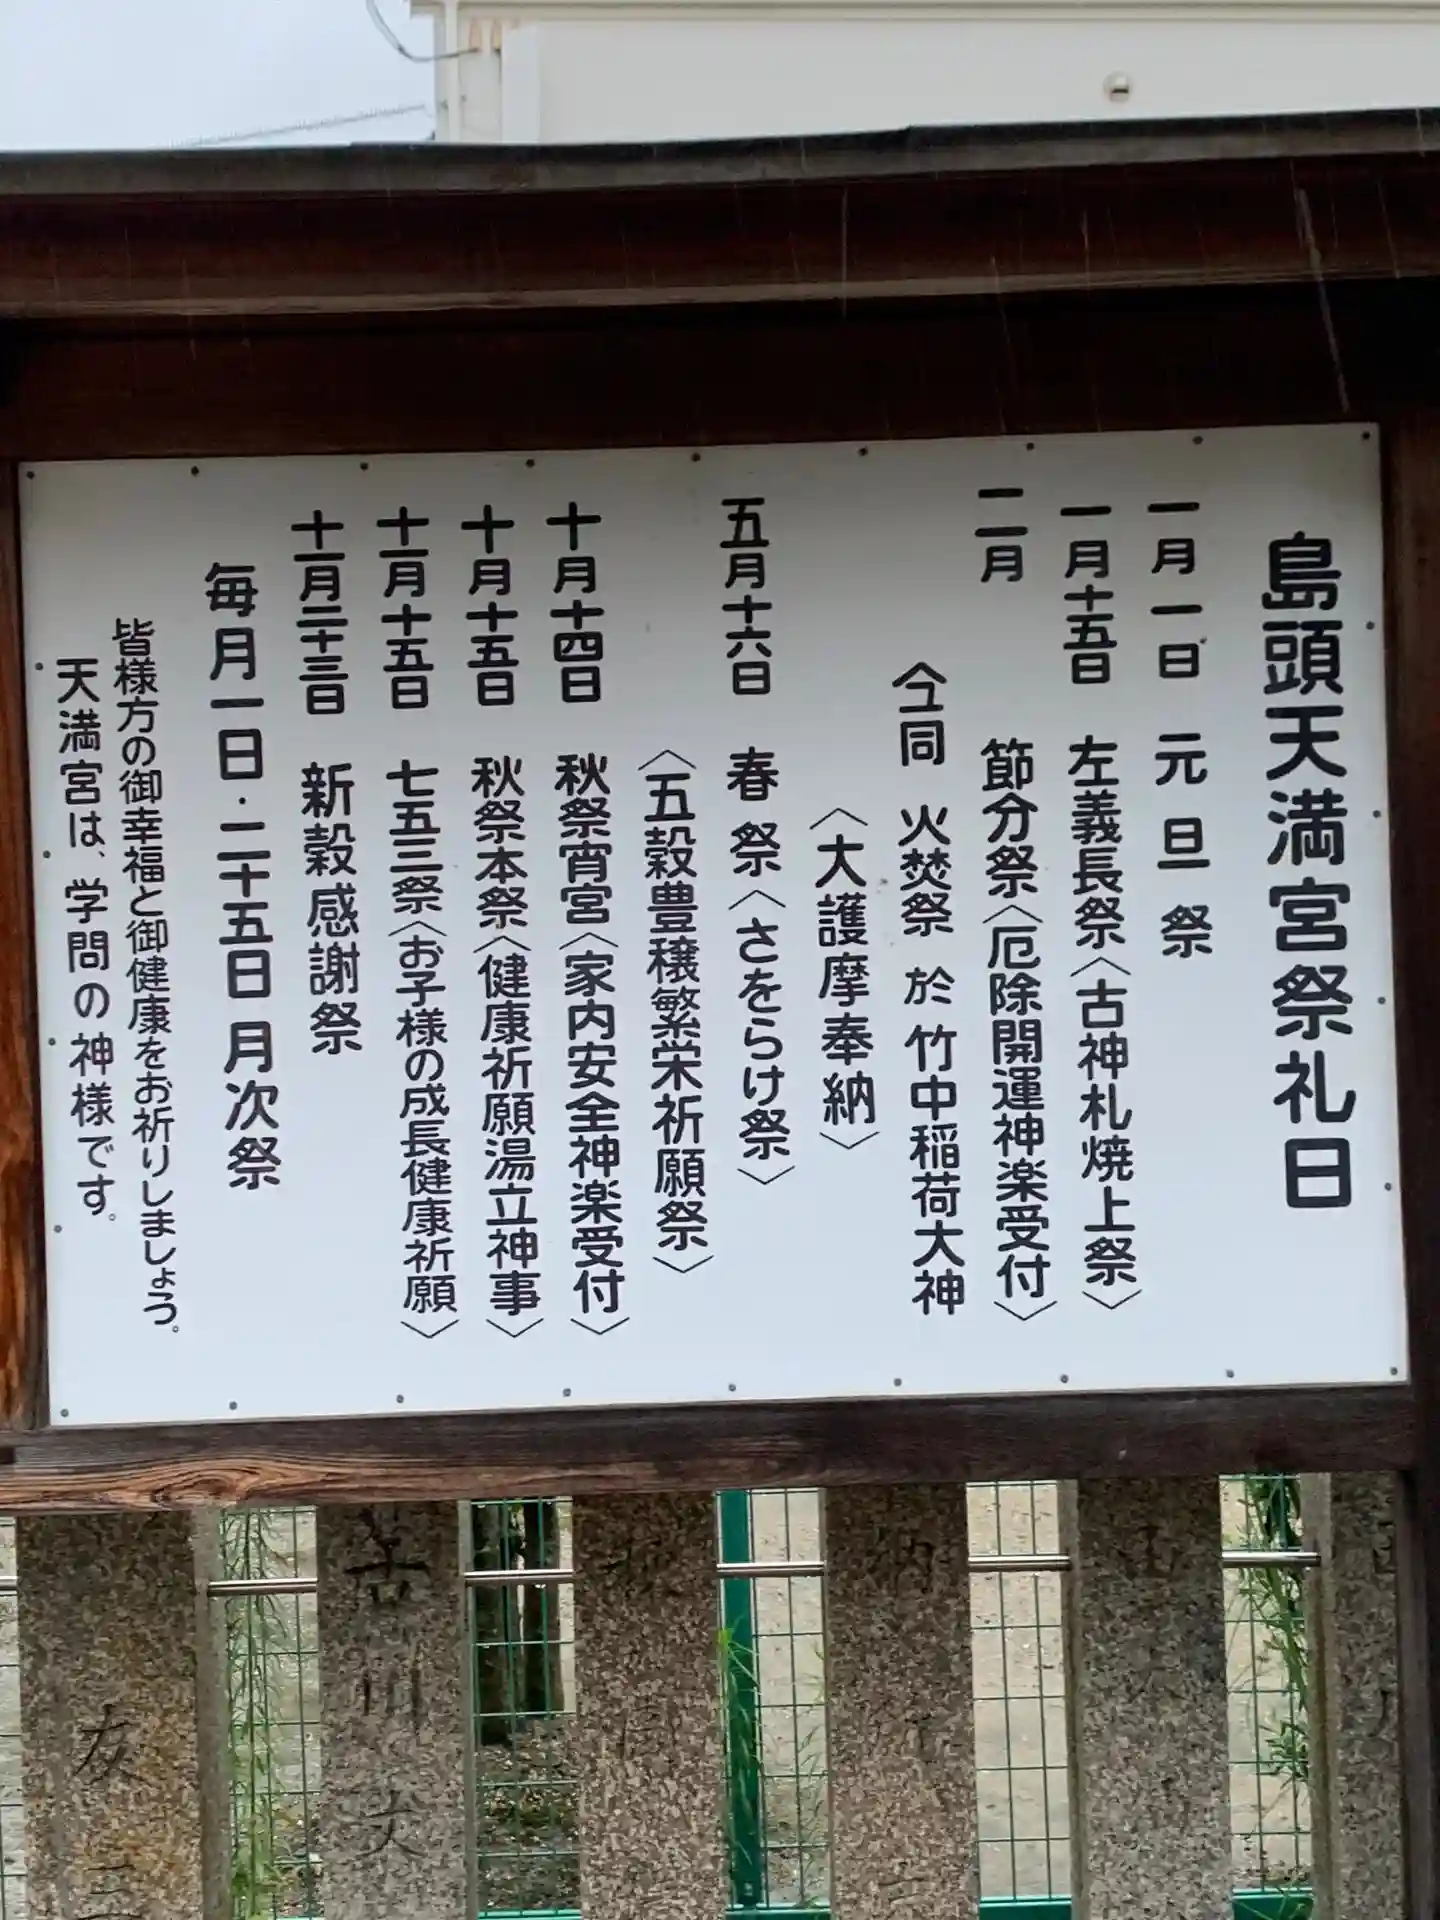 島頭天満宮祭礼日
一月一日 元旦祭
一月十五日 左義長祭〈古神札焼上祭〉
二月 節分祭〈厄除開運神楽受付〉
仝同 火焚祭 於 竹中稲荷大神
〈大護摩奉納〉
五月十六日 春祭〈さをらけ祭〉
〈五穀豊穣繁栄祈願祭〉
十月十四日 秋祭宵宮〈家内安全神楽受付〉
十月十五日 秋祭本祭〈健康祈願湯立神事〉
十一月十五日 七五三祭〈お子様の成長健康祈願〉
十一月二十三日 新穀感謝祭
毎月一日・二十五日 月次祭
皆様方の御幸福と御健康をお祈りしましょう。
天満宮は、学問の神様です。